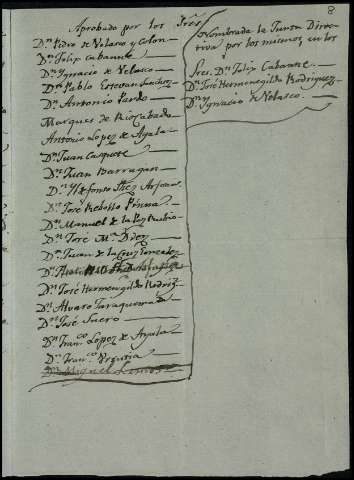 8
Aprobada por los Sres
Dn. Pedro de Velasco y Colon
Dn. Felix Cabanne
Dn. Ygnacio de Velasco
Dn. Pablo Estevan Sanchez
Dn. Antonio Pardo
Marques de Riocabado
Antonio Lopez de Ayala
Dn. Juan
Dn. Juan Barragan
Dn. Yldefonso
Dn. José Rebollo
Dn. Manuel de la Paz Rubio
Dn. José Ma. Diez
Dn. Juan de la Cruz Gonzalez
Dn.
Dn. José Hermenegildo Rodriz
Dn. Alvaro
Dn. José Suero
Dn. Franco. Lopez de Ayala
Dn. Franco. Urrutia
Dn. Miguel
Nombrada la Junta Direc
tiva por los mismos, en los
Sres. Dn. Felix Cabanne
Dn. José Hermenegildo Rodriguez
Dn. Ygnacio de Velasco